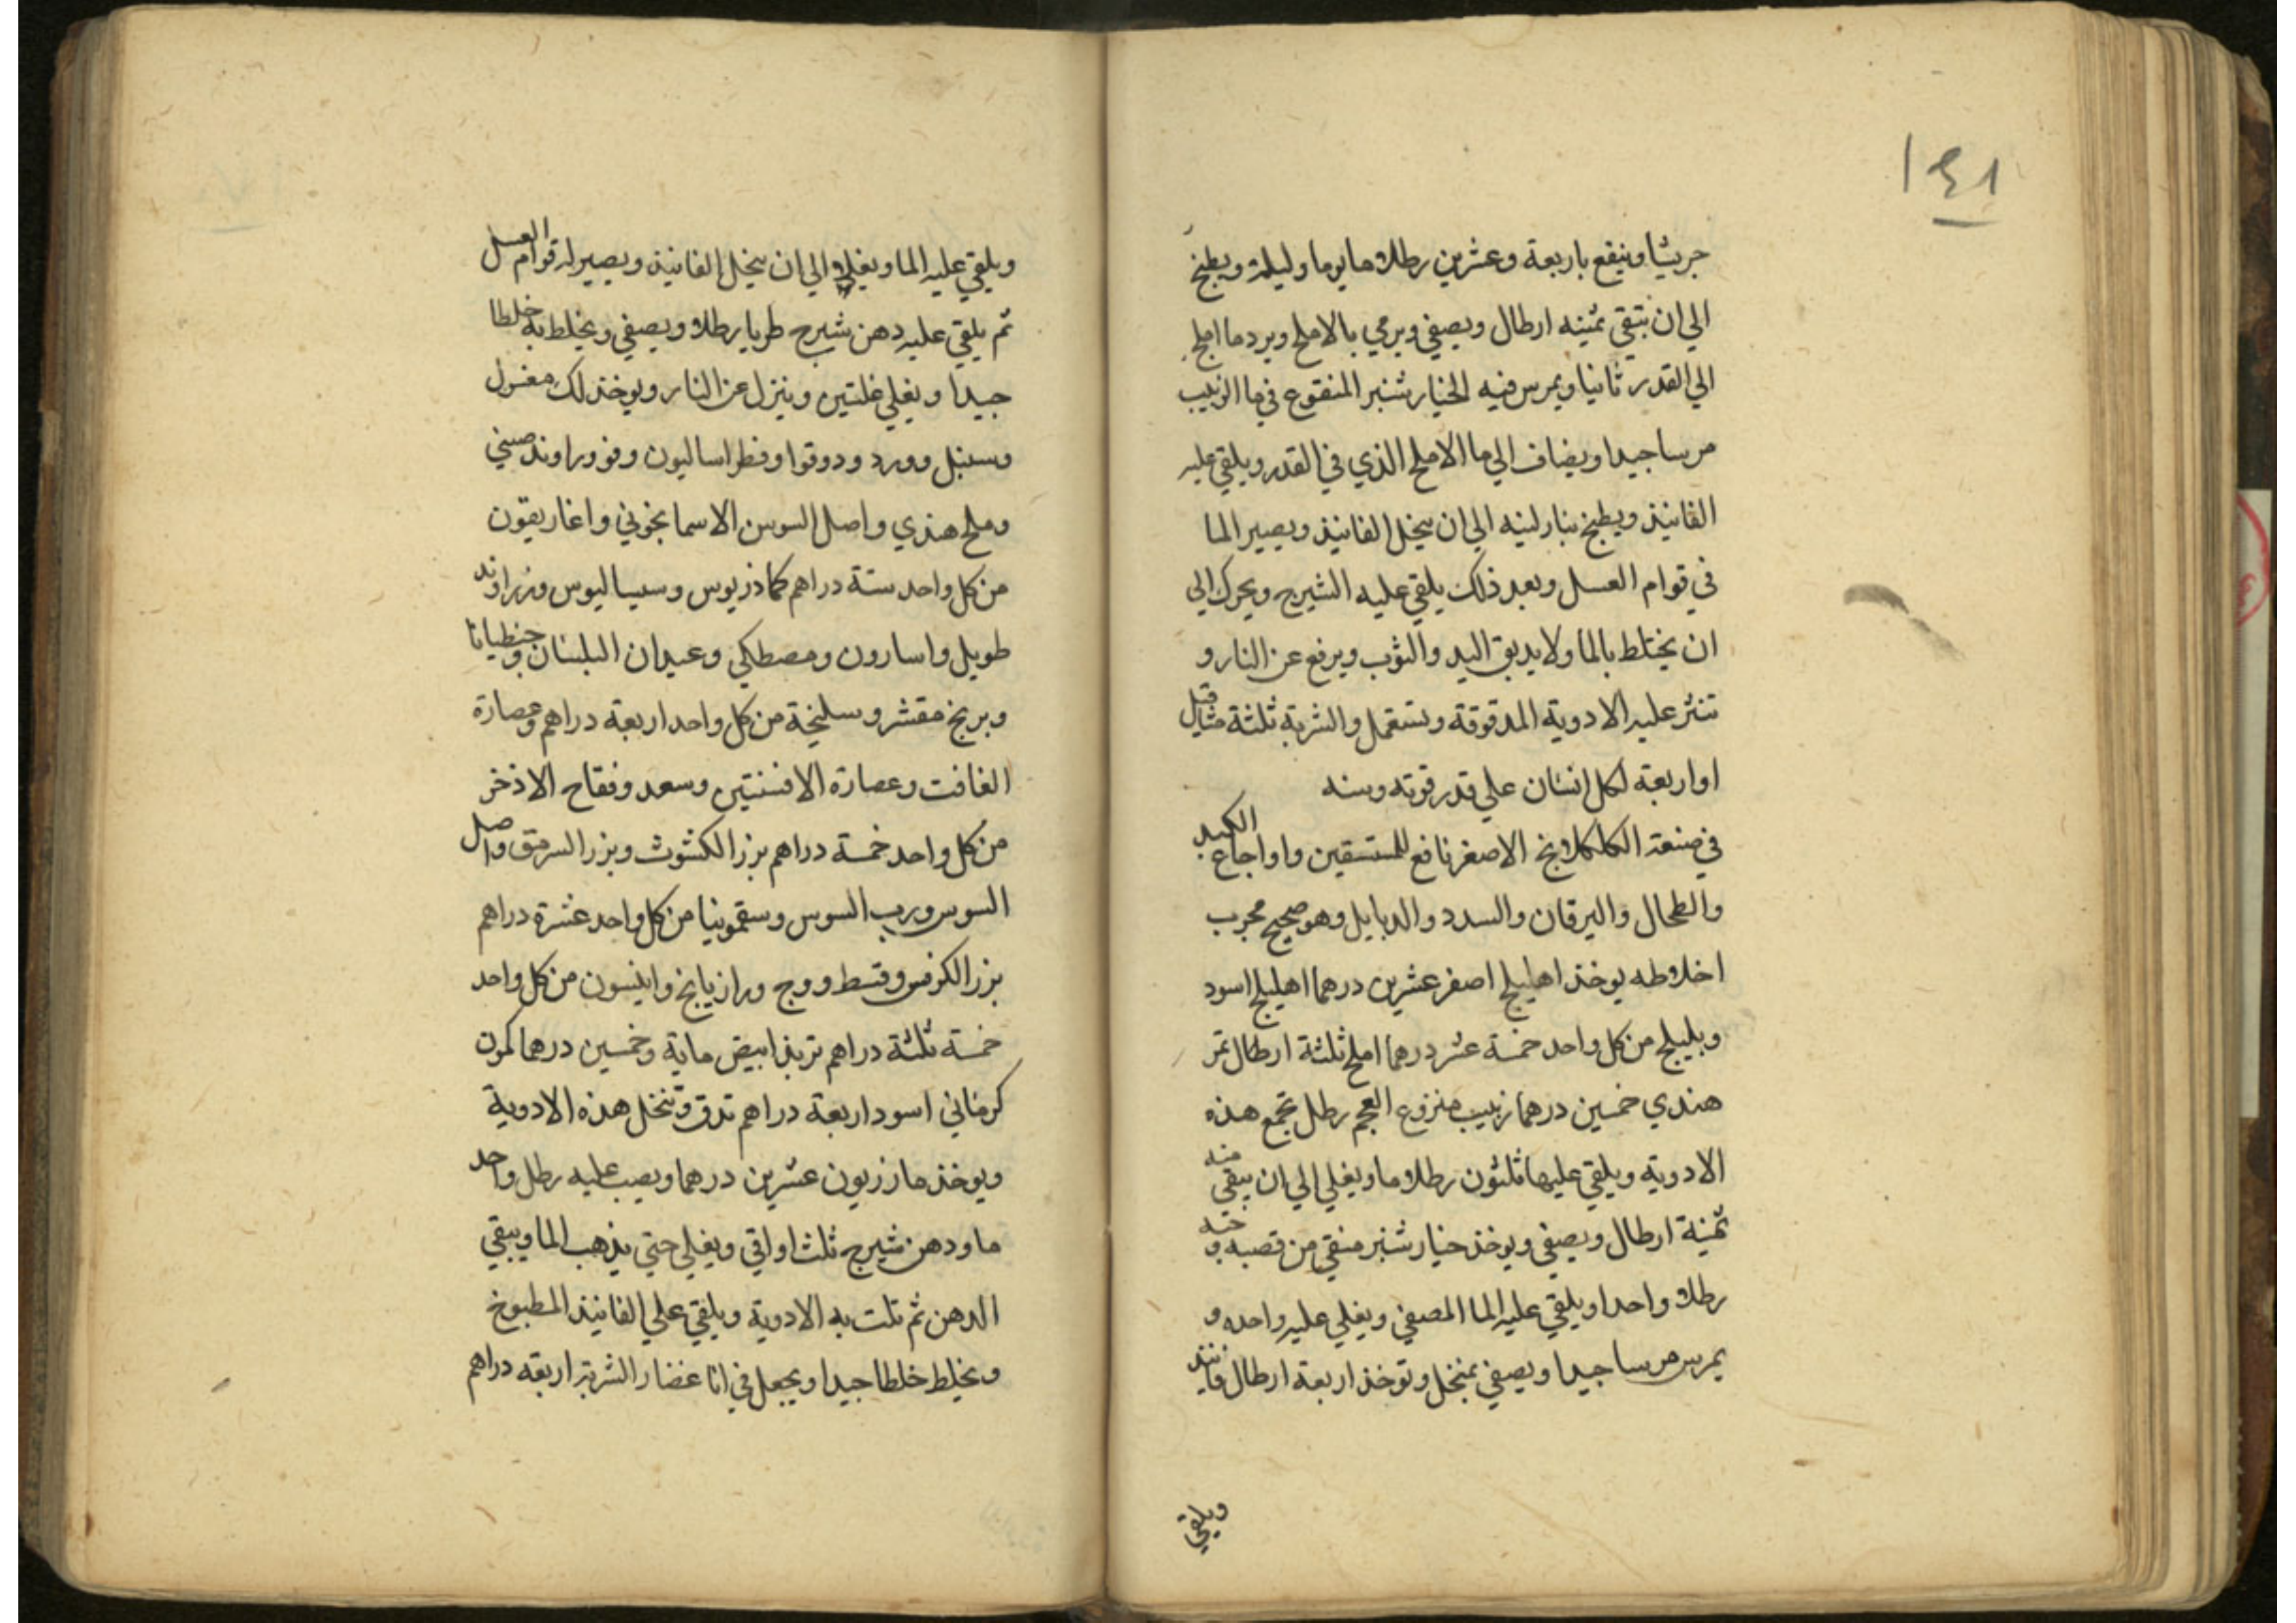 ١٤١
جريشا وينقع باربعة وعشرين رطلا ما يوما وليلة ويطبخ
الي ان تبقي ثمنيه ارطال ويصفي ويرمي بالاملج ويرد ما املج
الي القدر ثانيا ويمرس فيه الخيار شنبر المنقوع في ما الزبيب
مرسا جيدا ويضاف الي ما الاملج الذي في القدر ويلقي عليه
الفانيذ ويطبخ بنار لينه الي ان ينحل الفانيذ ويصير الما
في قوام العسل وبعد ذلك يلقي عليه الشيرج ويحرك الي
ان يختلط بالما ولا يدبق اليد والثوب ويرفع عن النار و
تنثر عليه الادوية المدقوقة وتستعمل والشربة ثلثة مثاقيل
او اربعة لكل انسان علي قدر قوته وسنه
في صنعة الكلكلانج الاصفر نافع للمستسقين واوجاع الكبد
والطحال واليرقان والسدد والدبايل وهو صحيح مجرب
اخلاطه يوخذ اهليلج اصفر عشرين درهما اهليلج اسود
وبليلج من كل واحد خمسة عشر درهما املج ثلثة ارطال تمر
هندي خمسين درهما زبيب منزوع العجم رطل تجمع هذه
الادوية ويلقي عليها ثلثون رطلا ما ويغلي الي ان يبقي منه
ثمنية ارطال ويصفي ويوخذ خيار شنبر منقي من قصبه و حبه
رطلا واحدا ويلقي عليه الما المصفي ويغلي عليه واحده و
يمرس مرسا جيدا ويصفي بمنخل وتوخذ اربعة ارطال فانيذ
ويلقي
ويلقي عليه الما ويغلي الي ان ينحل الفانيذ ويصير له قوام العسل
ثم يلقي عليه دهن شيرج طريا رطلا ويصفي ويخلط به خلطا
جيدا ويغلي غلتين وينزل عن النار ويوخذ لك مغسول
وسنبل وورد ودوقوا وفطراساليون وفو وراوند صيني
وملح هندي واصل السوسن الاسمانجوني واغاريقون
من كل واحد ستة دراهم كماذريوس وسيساليوس وزراوند
طويل واسارون ومصطكي وعيدان البلسان وجنطيانا
وبرنج مقشر وسليخة من كل واحد اربعة دراهم وعصارة
الغافت وعصارة الافسنتين وسعد وفقاح الاذخر
من كل واحد خمسة دراهم بزر الكشوث وبزر السرمق واصل
السوس ورب السوس وسقمونيا من كل واحد عشرة دراهم
بزر الكرفس وقسط ووج ورازيانج وانيسون من كل واحد
خمسة ثلثة دراهم تربذ ابيض ماية وخمسين درهما كمون
كرماني اسود اربعة دراهم تدق وتنخل هذه الادوية
ويوخذ مازريون عشرين درهما ويصب عليه رطل واحد
ما ودهن شيرج ثلث اواقي ويغلي حتي يذهب الما ويبقي
الدهن ثم تلت به الادوية ويلقي علي الفانيذ المطبوخ
ويخلط خلطا جيدا ويجعل في انا غضار الشربة اربعة دراهم